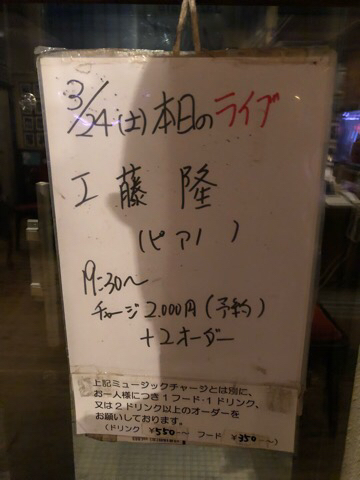 3/24(土)本日のライブ
工藤 隆
(ピアノ)
19:30〜
チャージ2.000円(予約)
+2オーダー
上記ミュージックチャージとは別に、
お一人様につき1フード・1ドリンク、
又は2ドリンク以上のオーダーを
お願いしております。
(ドリンク ¥550〜 フード ¥350〜)